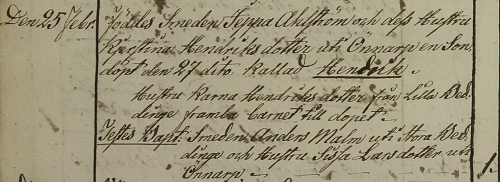 Den 25 Febr. föddes Smeden Jeppa Ahlström och dess Hustru
Kjerstina Hendriks dotter uti Önnarp en Son
döpt den 27 dito kallad Hendrik.
Hustru Karna Hendriks dotter från Lilla Bed-
dinge frambar barnet till dopet
Testes Bapt: Smeden Anders Malm uti Stora Bed-
dinge och Hustru Sissa Lars dotter uti
Önnarp
1.